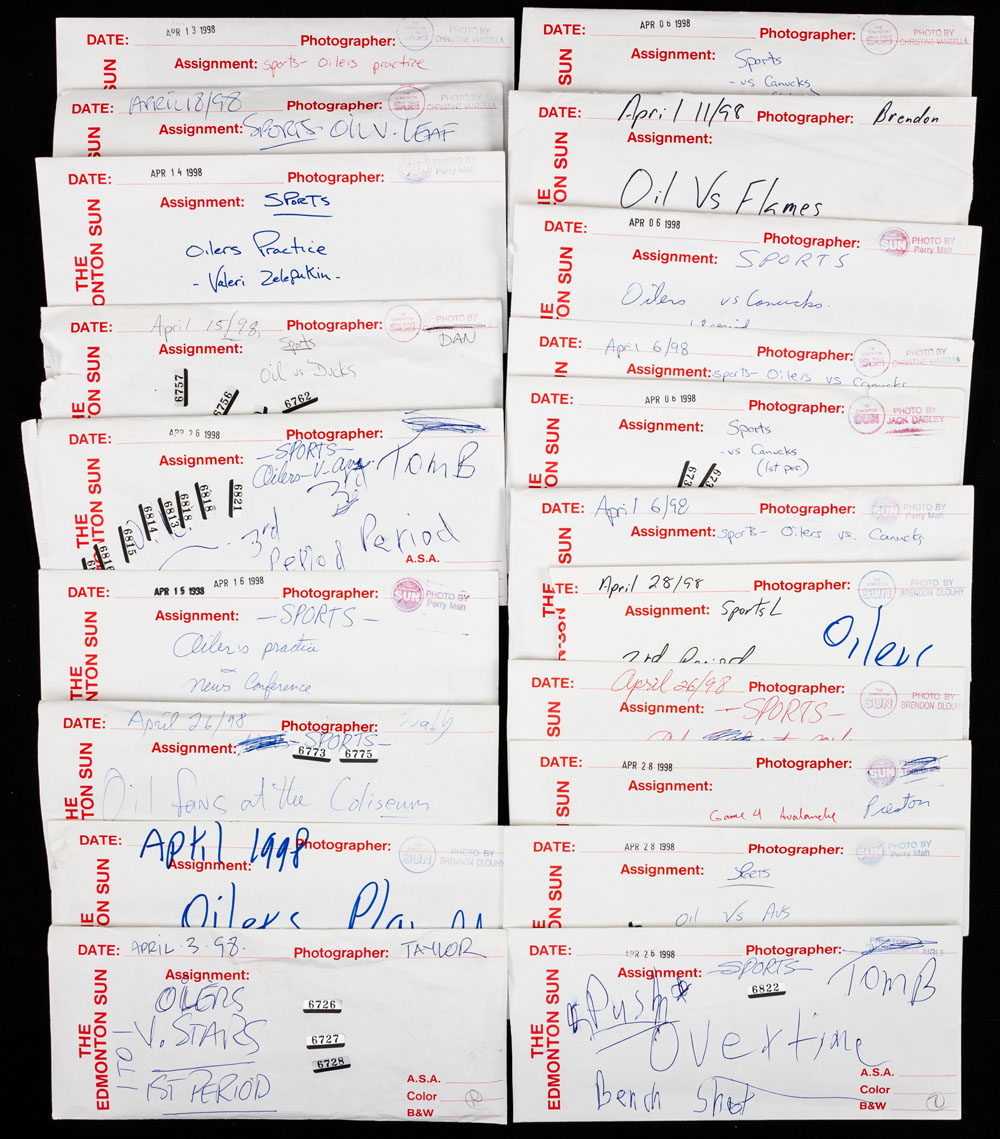 DATE: APR 13 1998 Photographer: SUN PHOTO BY CHRISTINE VANZELLA
Assignment: sports- Oilers practice
DATE: APRIL 18/98 Photographer: SUN PHOTO BY CHRISTINE VANZELLA
Assignment: SPORTS- OIL V. LEAF
DATE: APR 14 1998 Photographer: PHOTO BY Perry Mah
Assignment: SPORTS
THE EDMONTON SUN
Oilers Practice
- Valeri Zelepukin -
DATE: April 15/98 Photographer: PHOTO BY DAN
Assignment: Sports
ON SUN
Oil vs Ducks
6757
6756
6762
DATE: APR 26 1998 Photographer:
Assignment: -SPORTS- TOM B
THE EDMONTON SUN
Oilers-V-
3rd
6821
6818
6818
6813
6814
6815
6816
3rd Period
Period
A.S.A.
DATE: APR 15 1998 APR 16 1998 Photographer: SUN PHOTO BY Perry Mah
Assignment: -SPORTS-
THE EDMONTON SUN
Oilers practice
News Conference
DATE: April 26/98 Photographer: Wally
Assignment: -SPORTS-
6773 6775
THE EDMONTON SUN
Oil fans at the Coliseum
DATE: APRIL 1998 Photographer: SUN PHOTO BY BRENDON DLOUHY
Assignment:
ON SUN
Oilers
DATE: APRIL.3.98. Photographer: TAYLOR
Assignment:
THE EDMONTON SUN
OILERS
V. STARS
1ST PERIOD
6726
6727
6728
A.S.A.
Color
B&W
DATE: APR 06 1998 Photographer: SUN PHOTO BY CHRISTINE VANZELLA
Assignment: Sports
SUN
- vs Canucks
DATE: April 11/98 Photographer: Brendon
Assignment:
THE EDMONTON SUN
Oil Vs Flames
DATE: APR 06 1998 Photographer: SUN PHOTO BY Perry Mah
Assignment: SPORTS
THE EDMONTON SUN
Oilers vs Canucks.
DATE: April 6/98 Photographer: SUN PHOTO BY CHRISTINE VANZELLA
Assignment: sports- Oilers vs Canucks
DATE: APR 06 1998 Photographer: SUN PHOTO BY JACK DAGLEY
Assignment: Sports
ON SUN
- vs Canucks
(1st per.)
DATE: April 6/98 Photographer: SUN PHOTO BY Perry Mah
Assignment: sports- Oilers vs. Canucks
SUN
DATE: April 28/98 Photographer: SUN PHOTO BY BRENDON DLOUHY
Assignment: Sports
THE
Oilers
3rd Period
DATE: April 26/98 Photographer: SUN PHOTO BY BRENDON DLOUHY
Assignment: -SPORTS-
SUN
DATE: APR 28 1998 Photographer: SUN Preston
Assignment:
SUN
Game 4 Avalanche
DATE: APR 28 1998 Photographer: SUN PHOTO BY Perry Mah
Assignment: Sports
ON SUN
Oil Vs Avs
DATE: APR 26 1998 Photographer:
Assignment: -SPORTS- TOM B
6822
THE EDMONTON SUN
*Push*
Overtime
Bench Shot
A.S.A.
Color
B&W